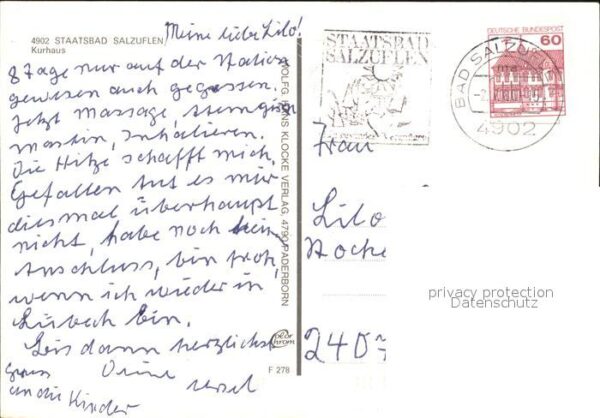 4902 STAATSBAD SALZUFLEN
Kurhaus
Meine liebe Lilo!
8 Tage nur auf der Station
gewesen auch gegessen.
Jetzt Massage,
Inhalieren.
Die Hitze schafft mich,
Gefallen tut es mir
diesmal überhaupt
nicht, habe noch kein
Anschluss, bin froh,
wenn ich wieder in
Lübeck bin.
Bis dann herzlichst
Gruss Deine
an die Kinder
HANS KLOCKE VERLAG, 4790 PADERBORN
color
chrom
F 278
STAATSBAD
SALZUFLEN
DEUTSCHE BUNDESPOST
60
BAD SALZUFLEN
4902
Frau
Lilo
240
privacy protection
Datenschutz